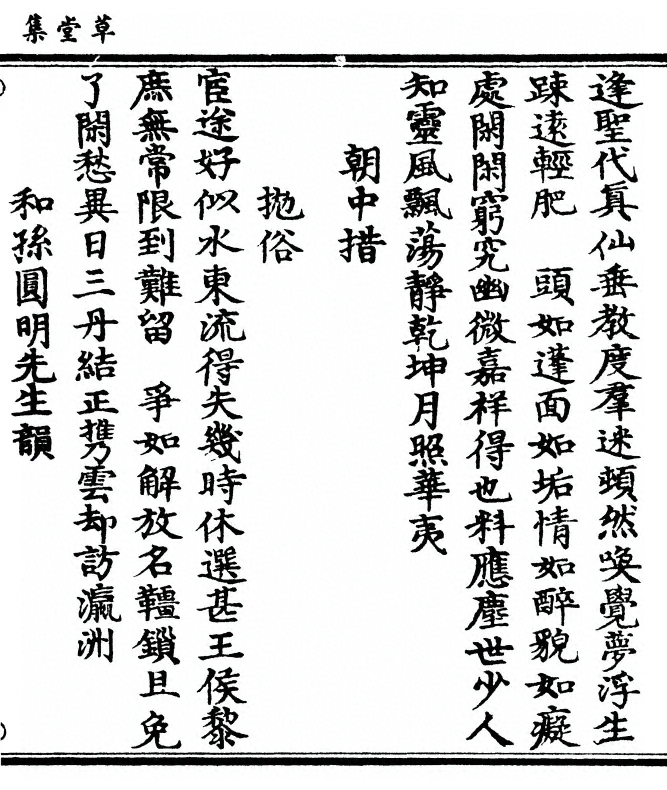 草堂集
逢聖代真仙垂教度羣迷頓然喚覺夢浮生
踈遠輕肥　頭如蓬面如垢情如醉貌如癡
處閑閑窮究幽微嘉祥得也料應塵世少人
知靈風飄蕩靜乾坤月照華夷
朝中措
拋俗
宦途好似水東流得失幾時休選甚王侯黎
庶無常限到難留　爭如解放名韁鎖且免
了閑愁異日三丹結正攜雲却訪瀛洲
和孫圓明先生韻